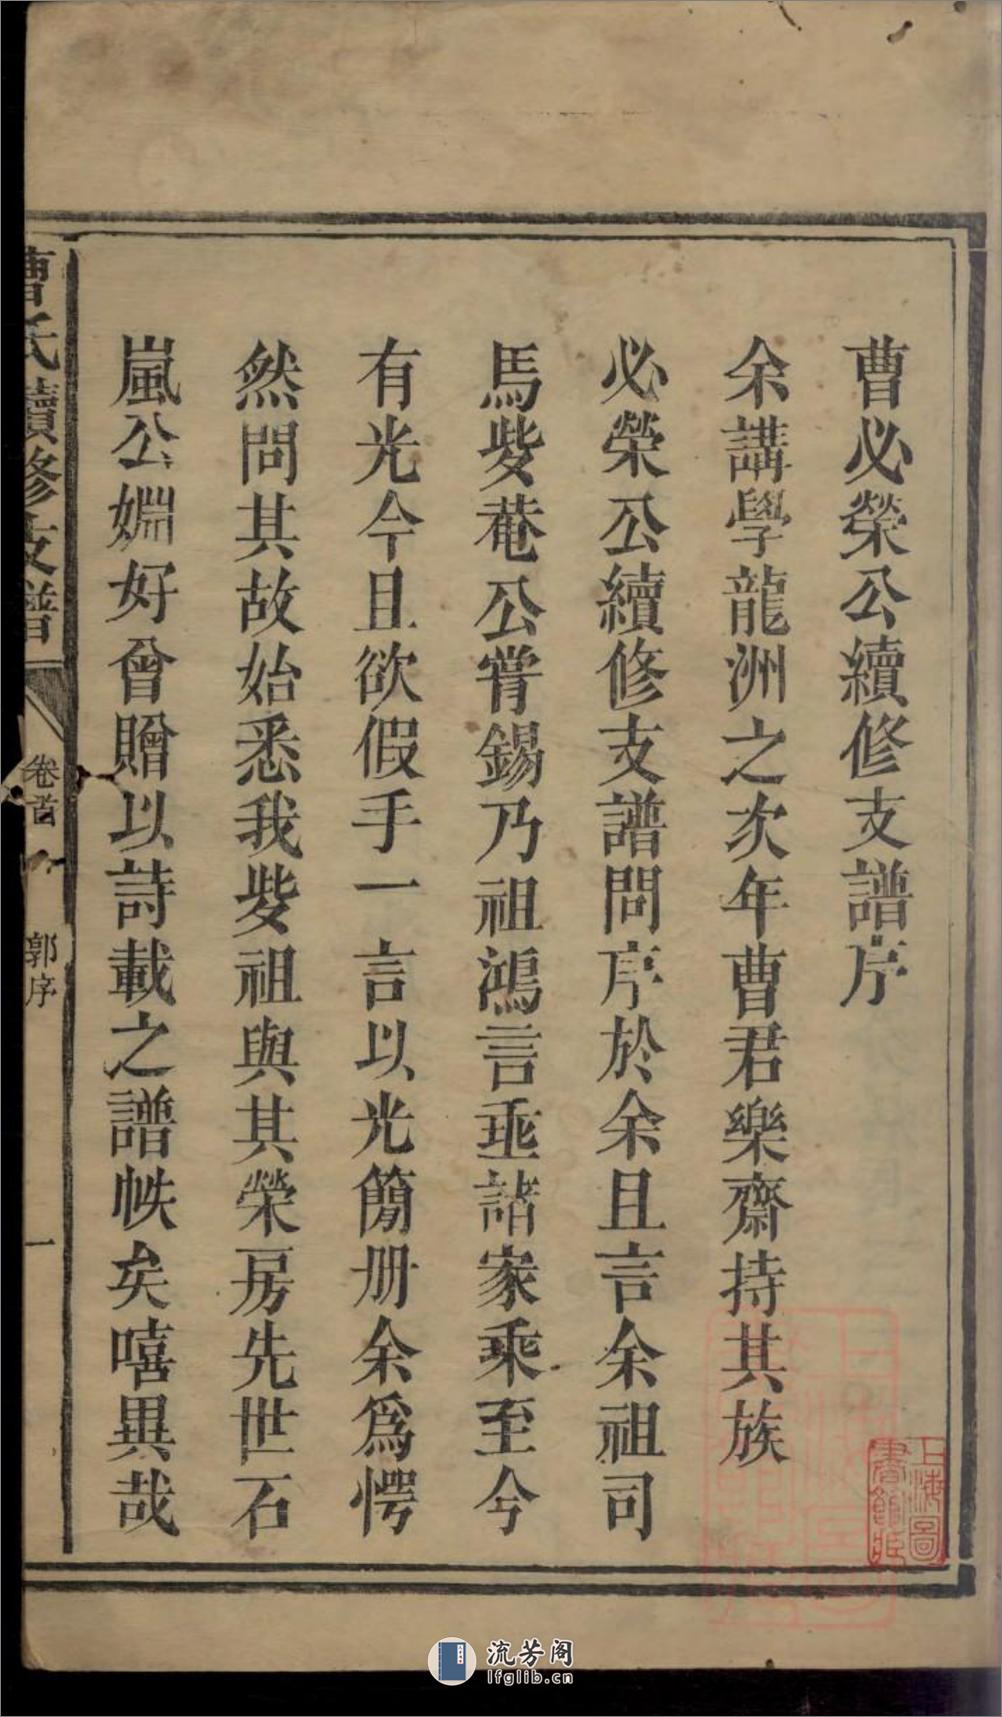 曹必榮公續修支譜序
余講學龍洲之次年曹君樂齋持其族
必榮公續修支譜問序於余且言余祖司
馬㱔菴公嘗錫乃祖鴻言垂諸家乘至今
有光今且欲假手一言以光簡册余爲愕
然問其故始悉我㱔祖與其榮房先世石
嵐公婣好曾贈以詩載之譜帙矣嘻異哉
曹氏續修支譜
卷首
郭序
一
上海圖
書館藏
流芳阁
lfglib.cn